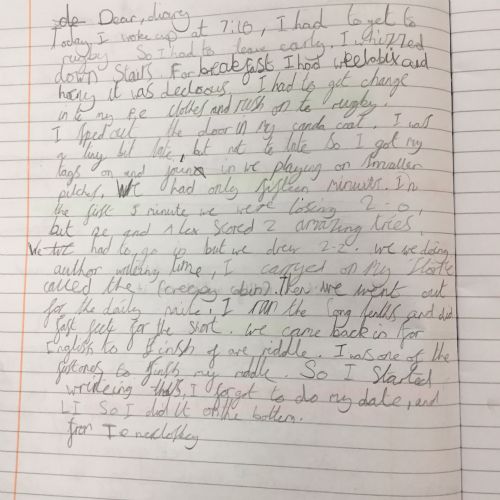 de Dear, diary
Today I woke up at 7:10, I had to get to
rugby. So I had to leave early. I whizzed
down stairs. For breakfast I had weetabix and
honey it was
I had to get change
into my P.e clothes and rush on to rugby.
I sped out the door in my coat. I was
a tiny bit late, but not to late So I got my
tags on and in we playing on smaller
We had only fifteen In
the first 5 minute we were losing 2-0,
but and Alex scored 2 amazing
We had to go in but we drew 2-2. We we doing
author writing time, I carryed on my
called the (creepy cabin). Then we went out
for the daily mile, I ran the long and did
fast feet for the start. We came back in for
English to finsh of are riddle. I was one of the
to finsh my riddle. So I started
writeing this, I forgot to do my date, and
LI So I did it on the bottem.
from